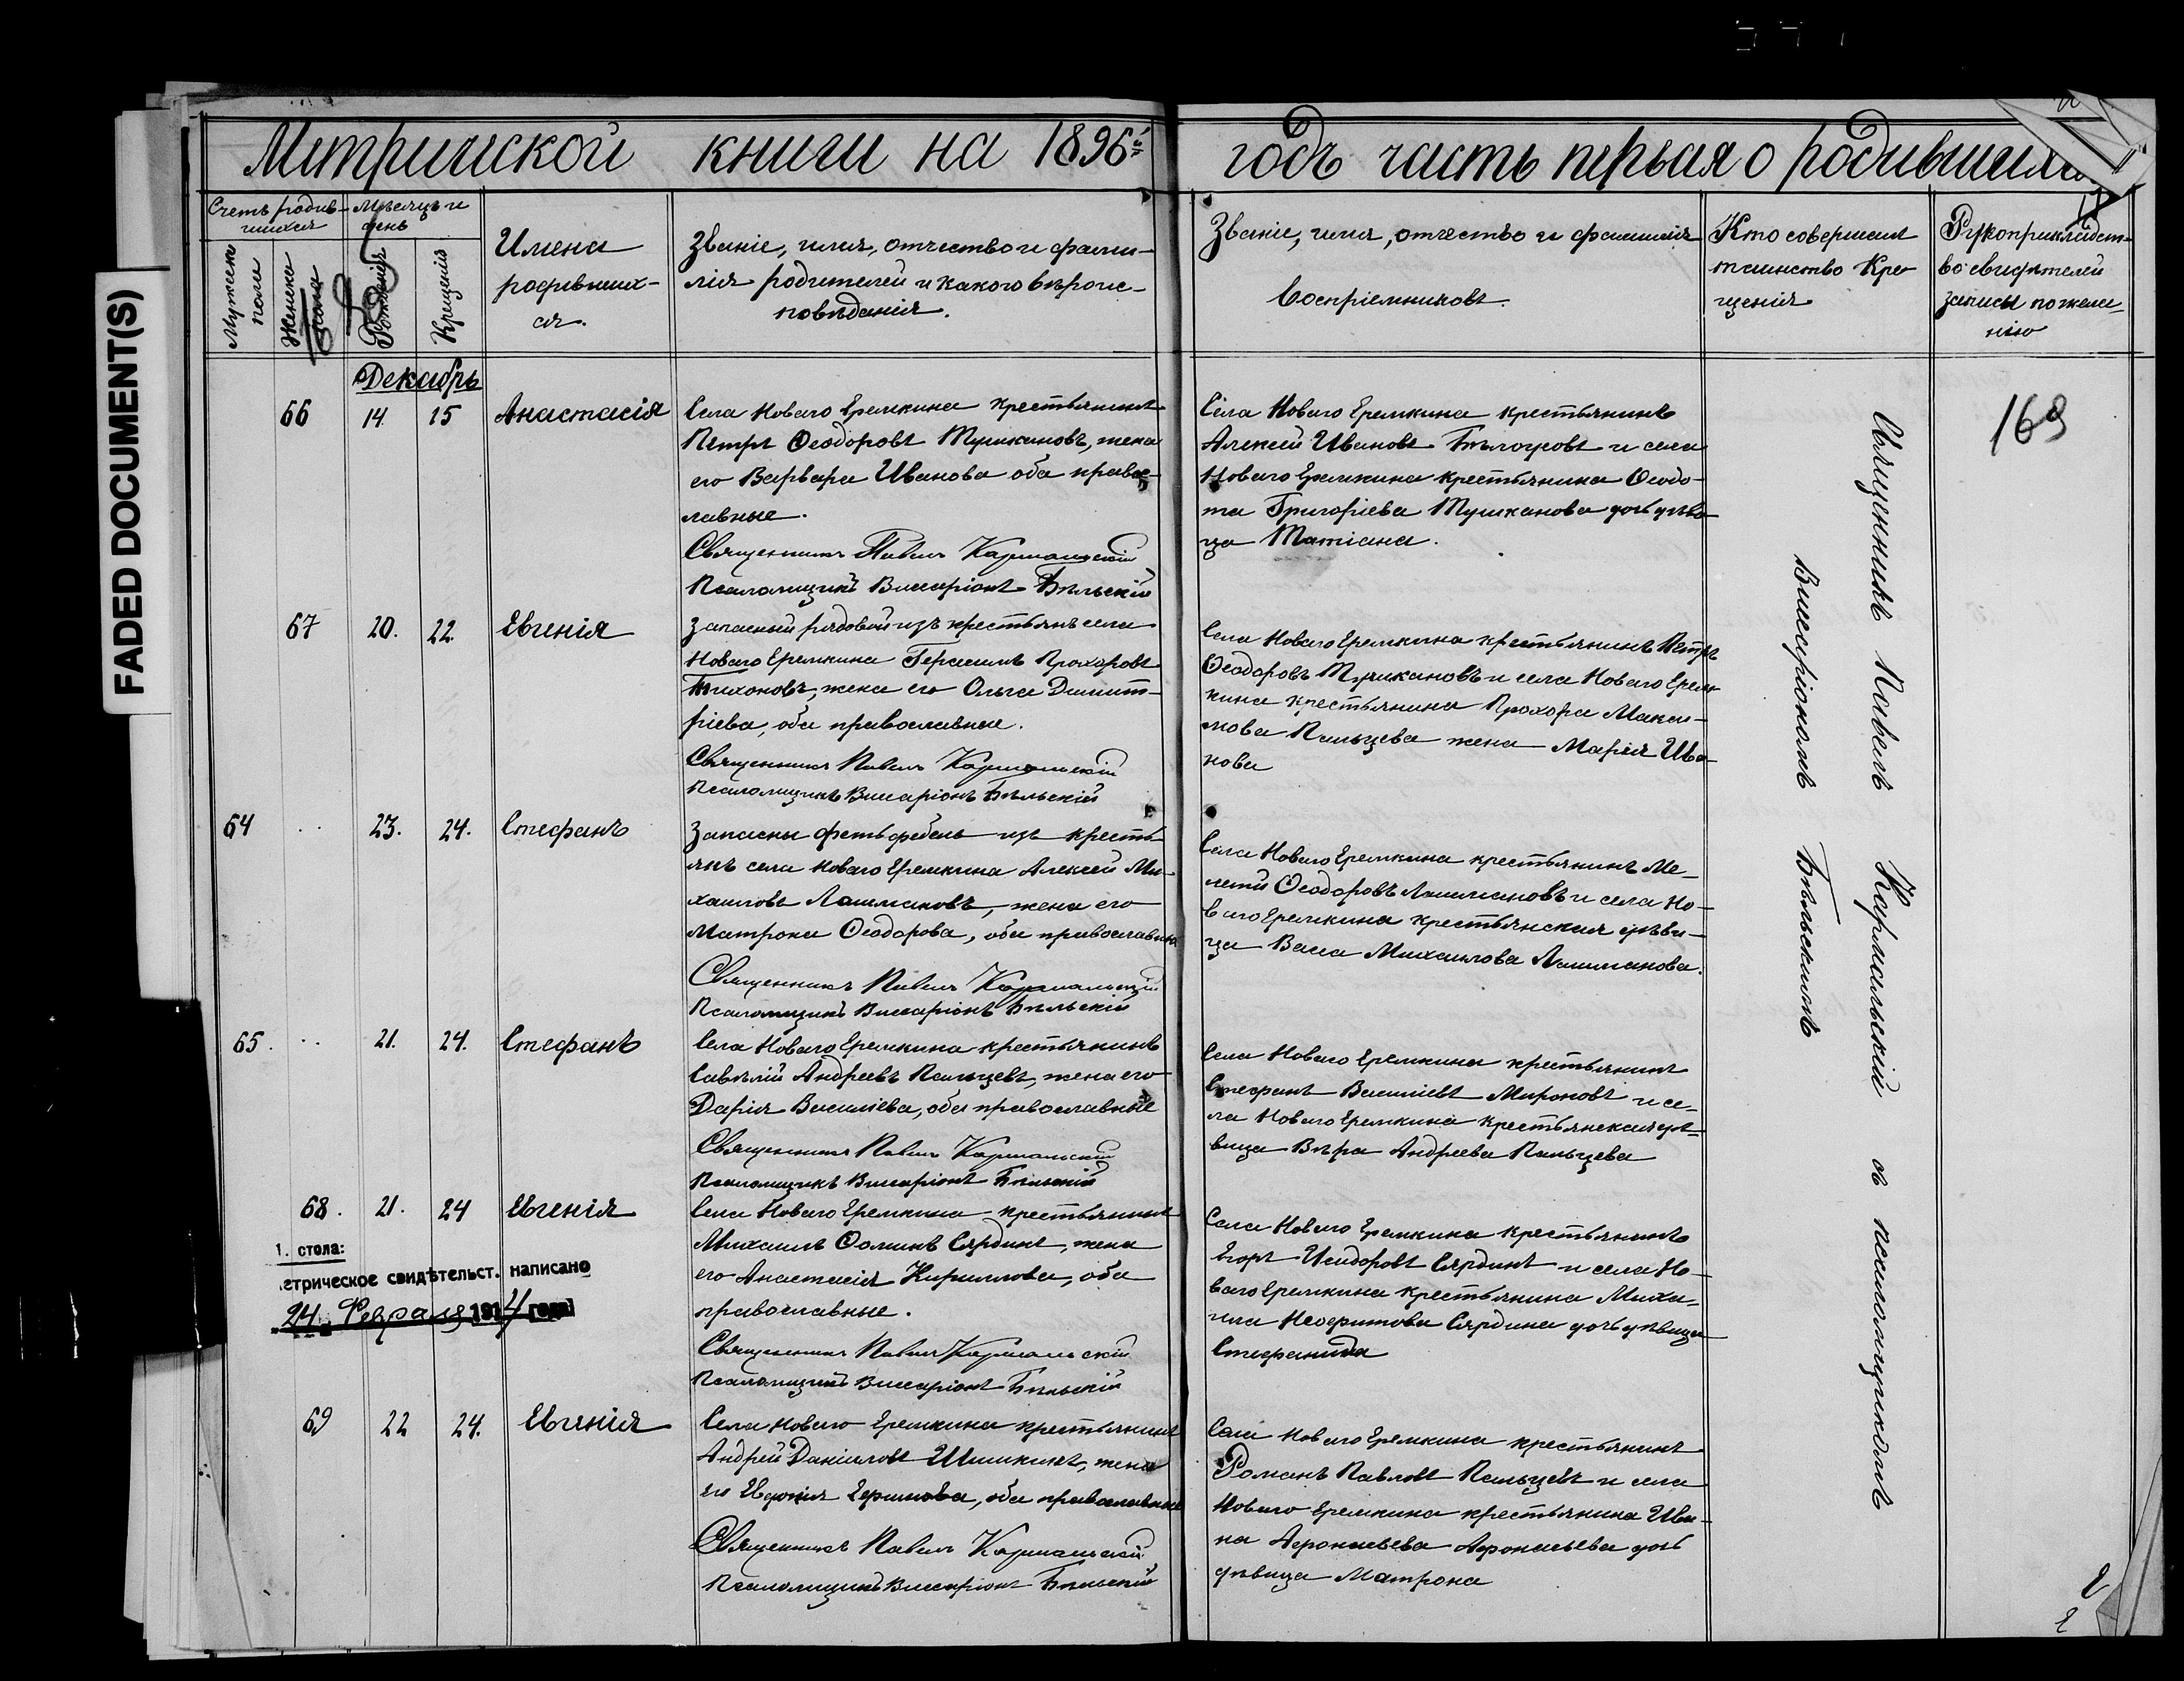 FADED DOCUMENT(S)
Метрической книги на 1896й годъ часть первая о родившихся
Счетъ родив-
шихся
Мужеска
пола
Женска
пола
Мѣсяцъ и
день
Рожденія
Крещенія
Имена
родивших-
ся.
Званіе, имя, отчество и фами-
лія родителей и какого вѣроис-
повѣданія.
Званіе, имя, отчество и фамилія
Воспріемниковъ.
Кто совершалъ
таинство Кре-
щенія
Рукоприкладст-
во свидѣтелей
записи по жела-
нію
Декабрь
66 14. 15 Анастасія
Села Новаго Еремкина крестьянинъ
Петръ Ѳеодоровъ Тушкановъ, жена
его Варвара Иванова оба правос-
лавные.
Священникъ Павелъ Кармальскій
Псаломщикъ Виссаріонъ Бѣльскій
Села Новаго Еремкина крестьянинъ
Алексей Ивановъ и села
Новаго Еремкина крестьянина Ѳеодо-
та Григоріева Тушканова дочь дѣви-
ца Татіана.
169
67 20. 22. Евгенія
Запасный рядовой изъ крестьянъ села
Новаго Еремкина Герасимъ Прохоровъ
Тихоновъ, жена его Ольга Димит-
ріева, оба православные.
Священникъ Павелъ Кармальскій
Псаломщикъ Виссаріонъ Бѣльскій
Села Новаго Еремкина крестьянинъ Петръ
Ѳеодоровъ Тушкановъ и села Новаго Ерем-
кина крестьянина Прохора Макси-
мова Пальцева жена Марія Ива-
нова
64 .. 23. 24. Стефанъ
Запасны фельдфебель изъ кресть-
янъ села Новаго Еремкина Алексей Ми-
хаиловъ Лашмановъ, жена его
Матрона Ѳеодорова, оба православны
Священникъ Павелъ Кармальскій
Псаломщикъ Виссаріонъ Бѣльскій
Села Новаго Еремкина крестьянинъ Ме-
летій Ѳеодоровъ Лашмановъ и села Но-
ваго Еремкина крестьянская дѣви-
ца Васса Михаилова Лашманова.
65. .. 21. 24. Стефанъ
Села Новаго Еремкина крестьянинъ
Савелій Андреевъ Пальцевъ, жена его
Дарія Василіева, оба православные
Священникъ Павелъ Кармальскій
Псаломщикъ Виссаріонъ Бѣльскій
Села Новаго Еремкина крестьянинъ
Стефанъ Василіевъ Мироновъ и се-
ла Новаго Еремкина крестьянская дѣ-
вица Вѣра Андреева Пальцева
68. 21. 24 Евгенія
Села Новаго Еремкина крестьянинъ
Михаилъ Ѳоминъ Сярдинъ, жена
его Анастасія Кириллова, оба
православные.
Священникъ Павелъ Кармальскій
Псаломщикъ Виссаріонъ Бѣльскій
Села Новаго Еремкина крестьянинъ
Егоръ Исидоровъ Сярдинъ и села Но-
ваго Еремкина крестьянина Миха-
ила Неофитова Сярдина дочь дѣвица
Стефанида
1. стола:
етрическое свидѣтельст. написано
24. Февраля 1914 года
69 22 24. Евгенія
Села Новаго Еремкина крестьянинъ
Андрей Даніиловъ Шишкинъ, жена
его Евдокія, оба православные
Священникъ Павелъ Кармальскій
Псаломщикъ Виссаріонъ Бѣльскій
Села Новаго Еремкина крестьянинъ
Романъ Павловъ Пальцевъ и села
Новаго Еремкина крестьянина Ива-
на Афонасьева Афонасьева дочь
дѣвица Матрона
Священникъ Павелъ Кармальскій съ псаломщикомъ
Виссаріономъ Бѣльскимъ